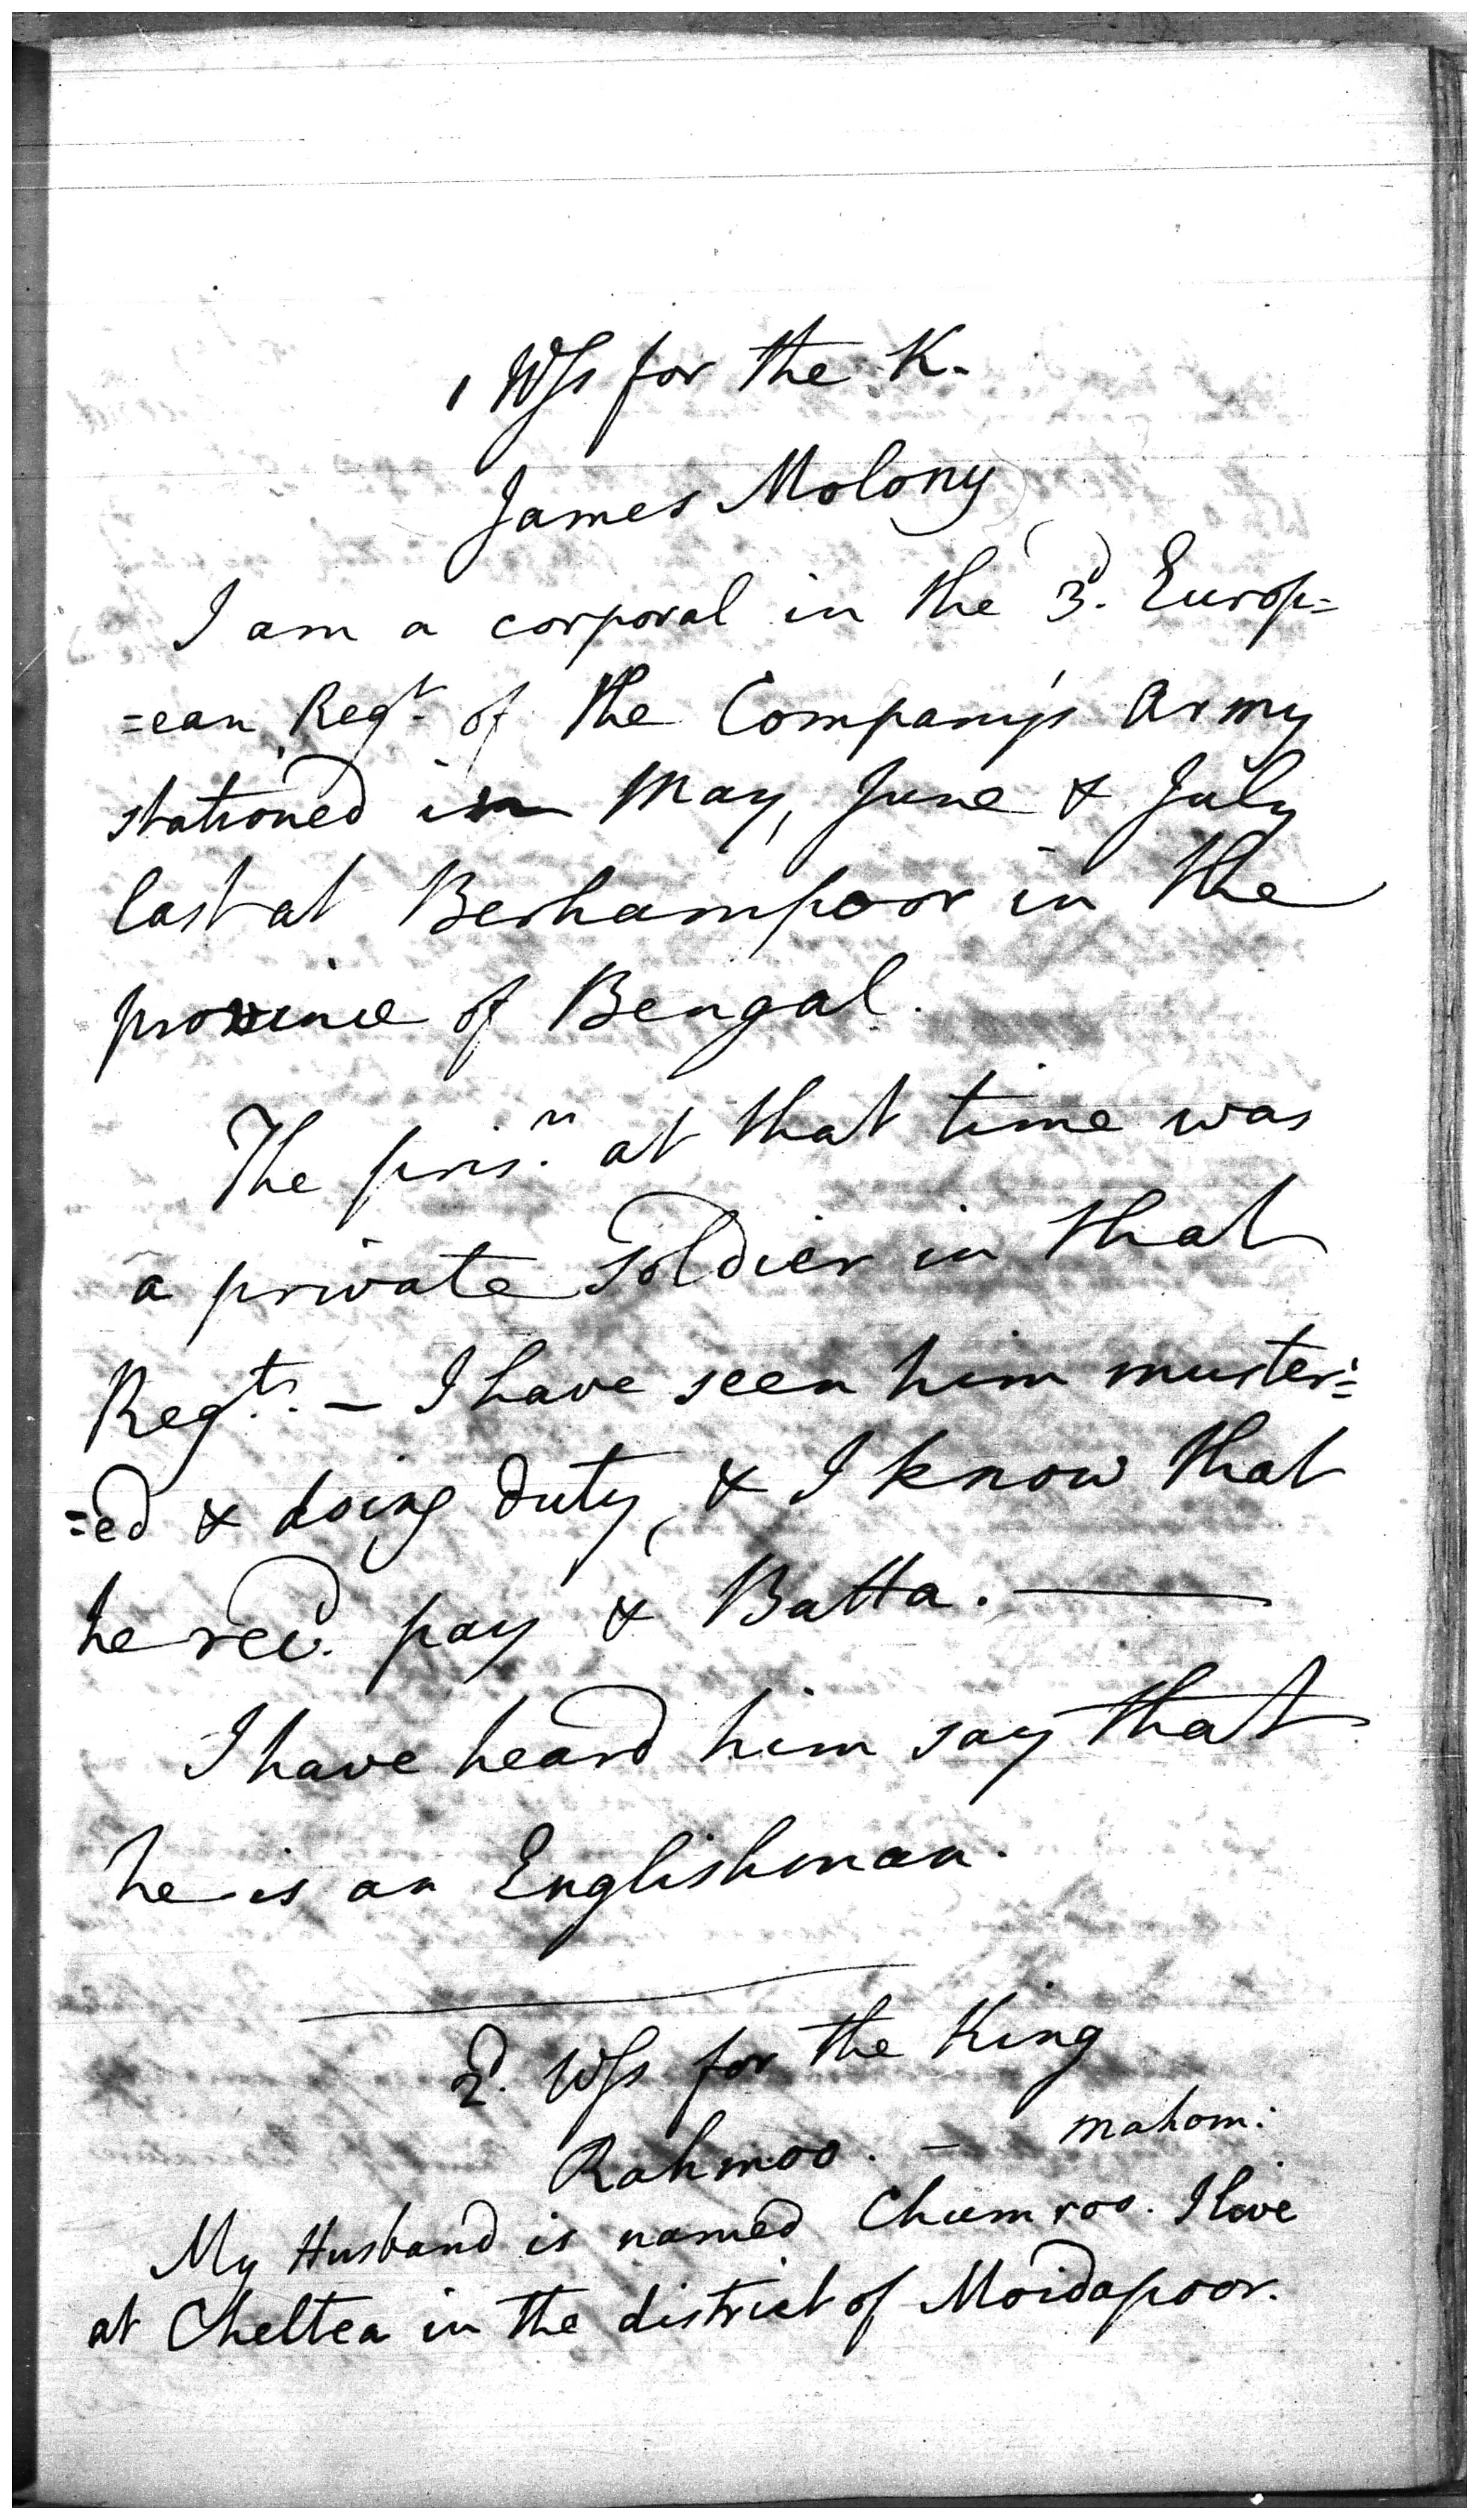 1 Wss for the K.
James Molony
I am a corporal in the 3d. Europ=
=ean Regt. of the Company's Army
stationed in May, June & July
last at Berhampoor in the
province of Bengal.
The prisr. at that time was
a private Soldier in that
Regt. – I have seen him muster=
=ed & doing duty, & I know that
he recd. pay & Batta. —
I have heard him say that
he is an Englishman.
2d. Wss for the King
Rahmoo. – mahom:
My Husband is named Chumroo. I live
at Cheltea in the district of Moidapoor.